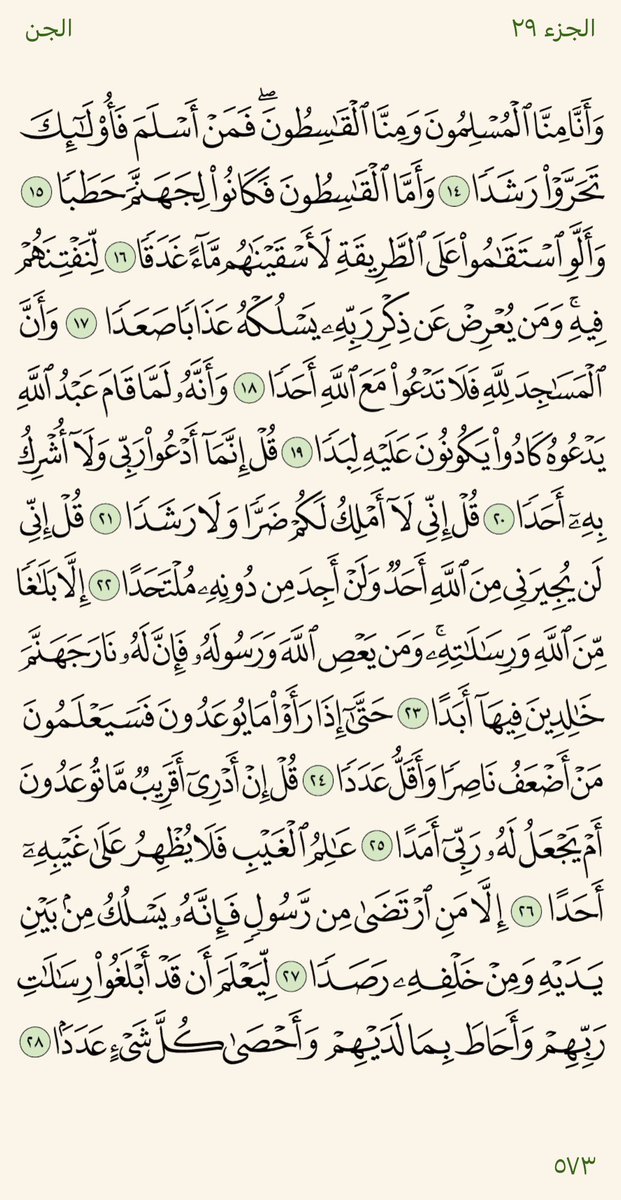 الجزء ٢٩
الجن
وَأَنَّا مِنَّا ٱلْمُسْلِمُونَ وَمِنَّا ٱلْقَٰسِطُونَۖ فَمَنْ أَسْلَمَ فَأُو۟لَٰٓئِكَ
تَحَرَّوْا۟ رَشَدًا ١٤ وَأَمَّا ٱلْقَٰسِطُونَ فَكَانُوا۟ لِجَهَنَّمَ حَطَبًا ١٥
وَأَلَّوِ ٱسْتَقَٰمُوا۟ عَلَى ٱلطَّرِيقَةِ لَأَسْقَيْنَٰهُم مَّآءً غَدَقًا ١٦ لِّنَفْتِنَهُمْ
فِيهِۚ وَمَن يُعْرِضْ عَن ذِكْرِ رَبِّهِۦ يَسْلُكْهُ عَذَابًا صَعَدًا ١٧ وَأَنَّ
ٱلْمَسَٰجِدَ لِلَّهِ فَلَا تَدْعُوا۟ مَعَ ٱللَّهِ أَحَدًا ١٨ وَأَنَّهُۥ لَمَّا قَامَ عَبْدُ ٱللَّهِ
يَدْعُوهُ كَادُوا۟ يَكُونُونَ عَلَيْهِ لِبَدًا ١٩ قُلْ إِنَّمَآ أَدْعُوا۟ رَبِّى وَلَآ أُشْرِكُ
بِهِۦٓ أَحَدًا ٢٠ قُلْ إِنِّى لَآ أَمْلِكُ لَكُمْ ضَرًّا وَلَا رَشَدًا ٢١ قُلْ إِنِّى
لَن يُجِيرَنِى مِنَ ٱللَّهِ أَحَدٌ وَلَنْ أَجِدَ مِن دُونِهِۦ مُلْتَحَدًا ٢٢ إِلَّا بَلَٰغًا
مِّنَ ٱللَّهِ وَرِسَٰلَٰتِهِۦۚ وَمَن يَعْصِ ٱللَّهَ وَرَسُولَهُۥ فَإِنَّ لَهُۥ نَارَ جَهَنَّمَ
خَٰلِدِينَ فِيهَآ أَبَدًا ٢٣ حَتَّىٰٓ إِذَا رَأَوْا۟ مَا يُوعَدُونَ فَسَيَعْلَمُونَ
مَنْ أَضْعَفُ نَاصِرًا وَأَقَلُّ عَدَدًا ٢٤ قُلْ إِنْ أَدْرِىٓ أَقَرِيبٌ مَّا تُوعَدُونَ
أَمْ يَجْعَلُ لَهُۥ رَبِّىٓ أَمَدًا ٢٥ عَٰلِمُ ٱلْغَيْبِ فَلَا يُظْهِرُ عَلَىٰ غَيْبِهِۦٓ
أَحَدًا ٢٦ إِلَّا مَنِ ٱرْتَضَىٰ مِن رَّسُولٍ فَإِنَّهُۥ يَسْلُكُ مِنۢ بَيْنِ
يَدَيْهِ وَمِنْ خَلْفِهِۦ رَصَدًا ٢٧ لِّيَعْلَمَ أَن قَدْ أَبْلَغُوا۟ رِسَٰلَٰتِ
رَبِّهِمْ وَأَحَاطَ بِمَا لَدَيْهِمْ وَأَحْصَىٰ كُلَّ شَىْءٍ عَدَدًۢا ٢٨
٥٧٣